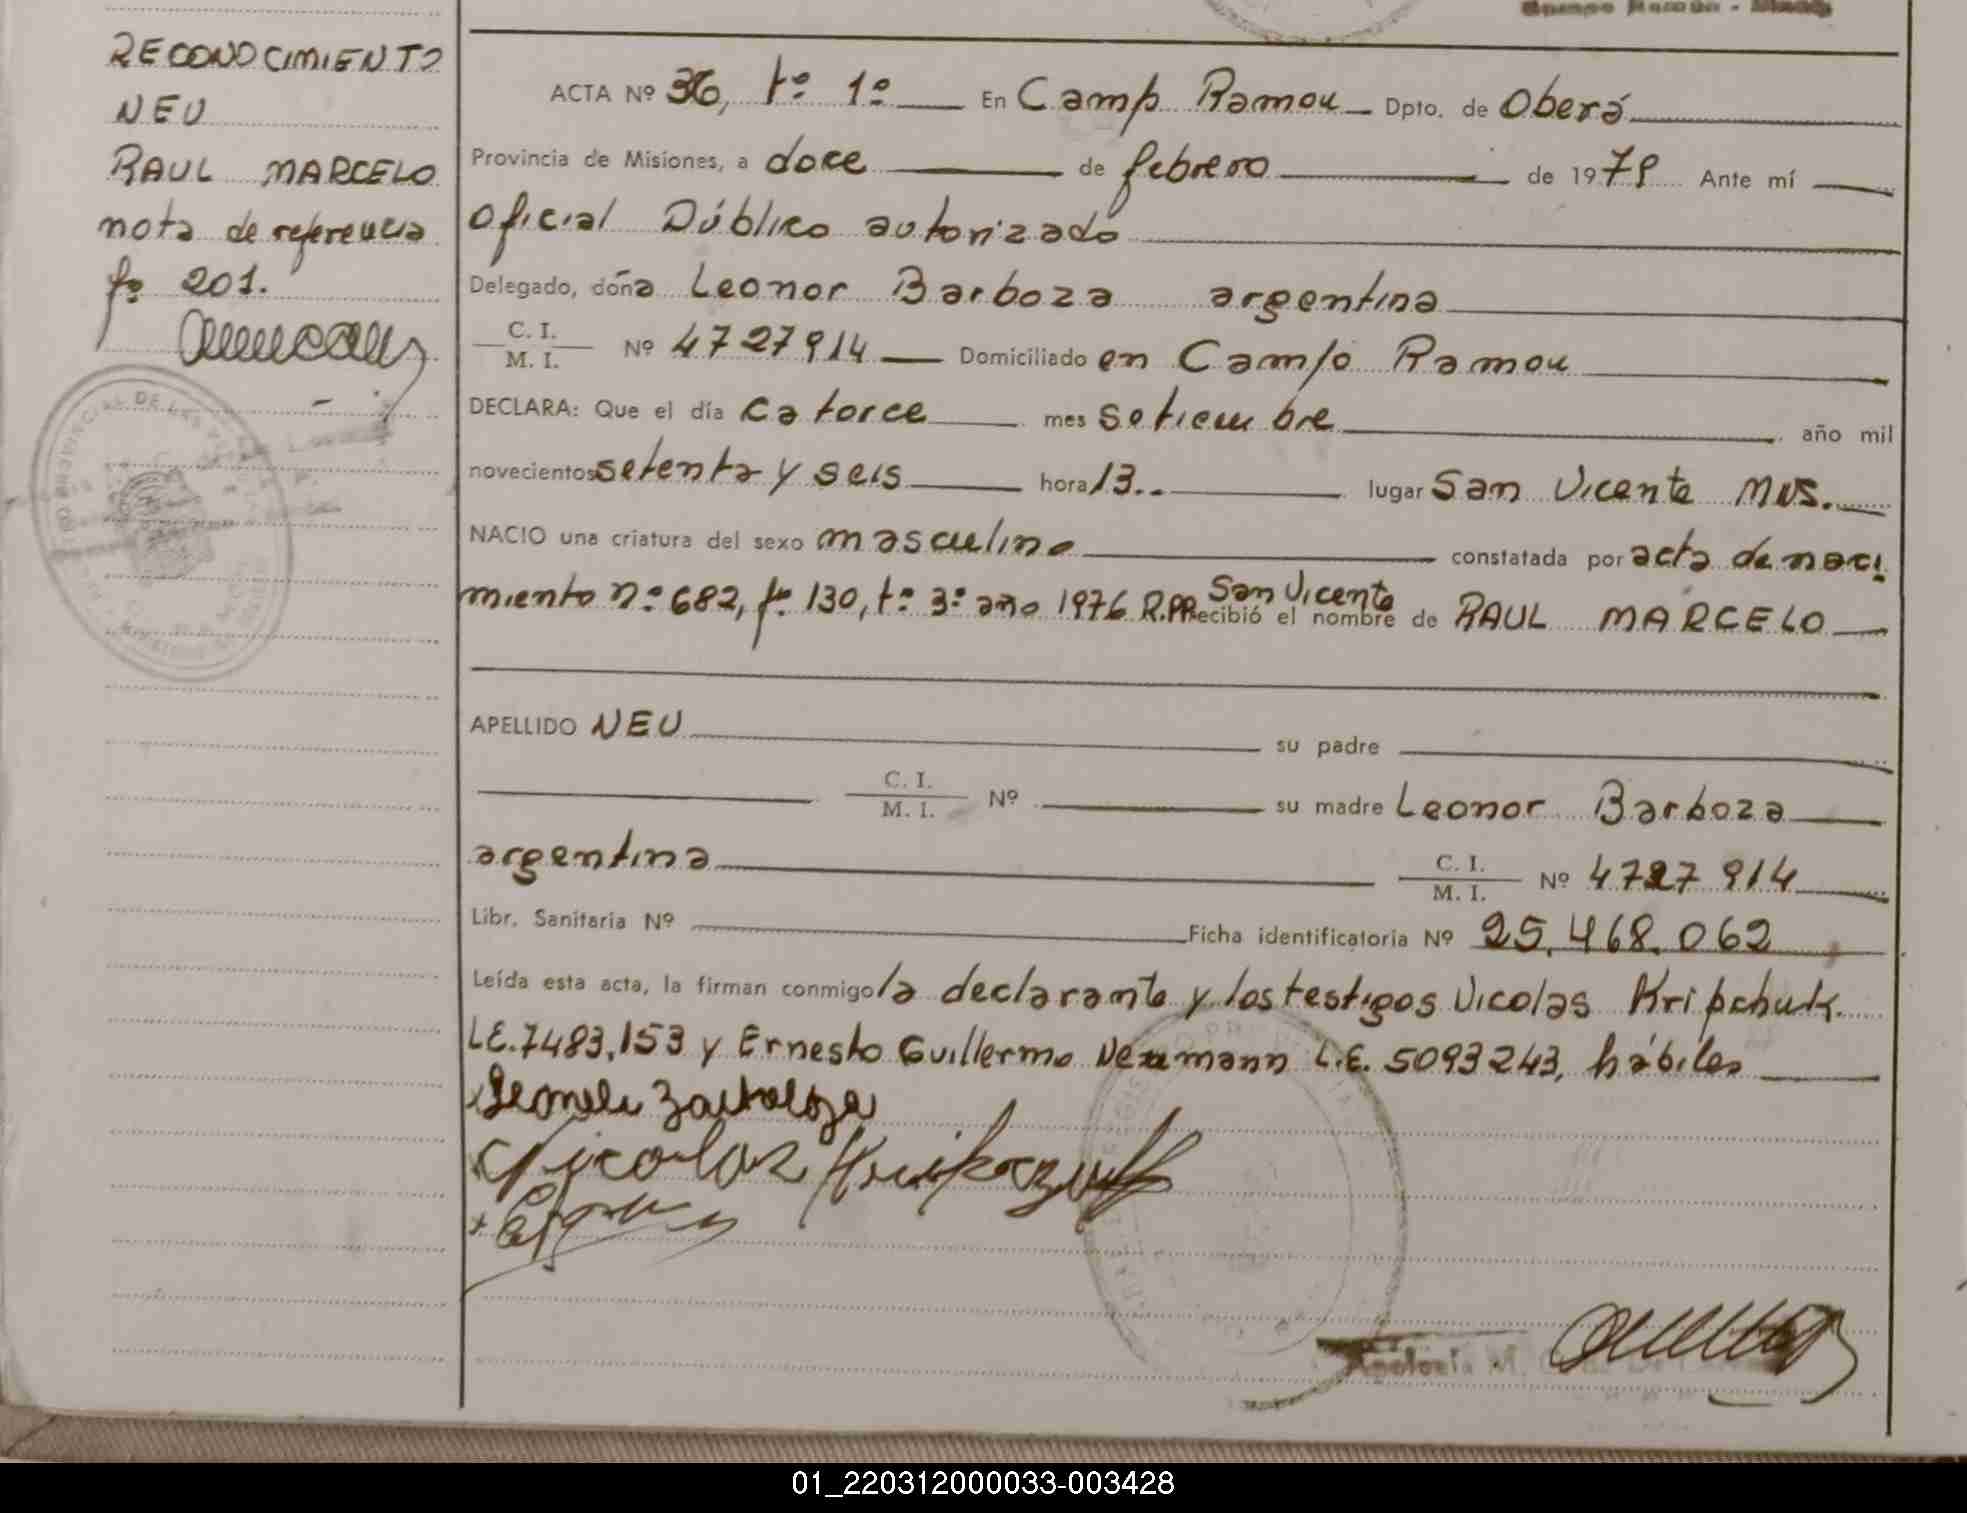 RECONOCIMIENTO
NEU
RAUL MARCELO
nota de referencia
fº 201.
ACTA Nº 36, tº 1º En Campo Ramon Dpto. de Oberá
Provincia de Misiones, a doce de febrero de 1979 Ante mí
Oficial Público autorizado
Delegado, doña Leonor Barboza argentina
C. I.
M. I. Nº 4727914 Domiciliado en Campo Ramon
DECLARA: Que el día catorce mes setiembre año mil
novecientos setenta y seis hora 13.. lugar San Vicente Mns.
NACIO una criatura del sexo masculino constatada por acta de naci
miento nº 682, fº 130, tº 3º año 1976 R.PP. San Vicente Recibió el nombre de RAUL MARCELO
APELLIDO NEU su padre
C. I.
M. I. Nº su madre Leonor Barboza
argentina C. I.
M. I. Nº 4727914
Libr. Sanitaria Nº Ficha identificatoria Nº 25.468.062
Leída esta acta, la firman conmigo la declarante y los testigos Nicolas Kripchuk.
L.E. 7483.153 y Ernesto Guillermo Neumann L.E. 5093243, hábiles
Nicolas
01_220312000033-003428